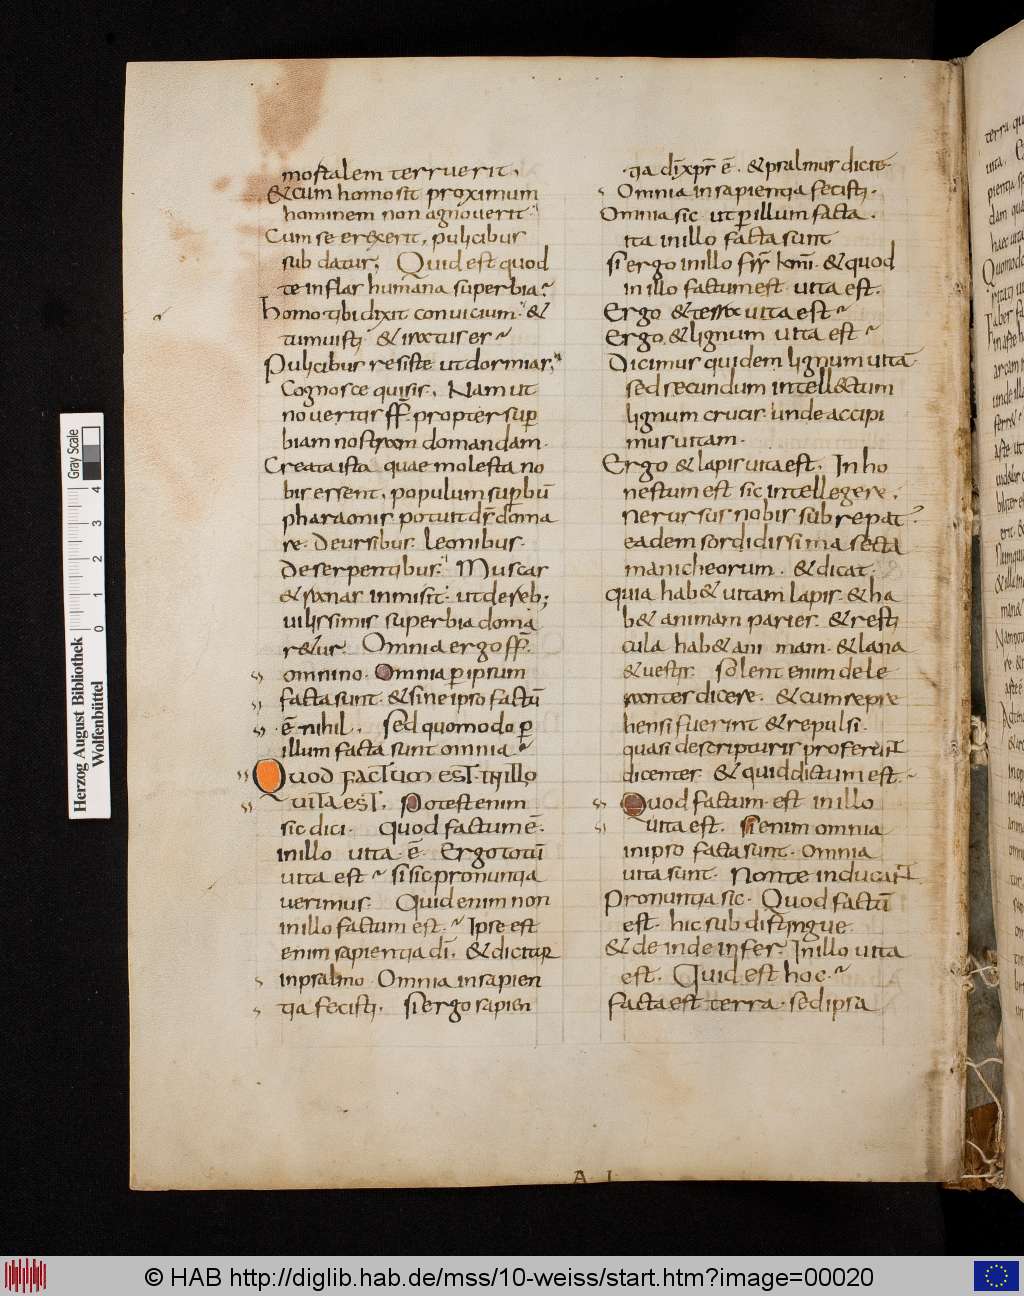 mortalem terruerit,
& cum homo sit proximum
hominem non agnouerit·
Cum se erexerit, pulicibus
sub datur; Quid est quod
te inflas humana superbia?
homo tibi dixit conuicium· &
tumuisti & iratus es?
Pulicibus resiste ut dormias;
Cognosce qui sis, Nam ut
noueritis ff̅. propter sup
biam nostram domandam·
Creata ista quae molesta no
bis essent, populum superbū
pharaonis potuit ds̅ doma
re· De ursibus· leonibus·
De serpentibus; Muscas
& ranas inmisit· ut de reb;
uilissimis superbia doma
r&ur· Omnia ergo ff̅.
omnino· Omnia p ipsum
facta sunt· & sine ipso factū
ē nihil, Sed quomodo p
illum facta sunt omnia?
Quod factum est· in illo
uita est, Potest enim
sic dici· quod factum ē·
in illo uita· ē· Ergo totū
uita est? si sic pronuntia
uerimus· Quid enim non
in illo factum est·? Ipse est
enim sapientia di̅· & dicitur
in psalmo· Omnia in sapien
tia fecisti, Si ergo sapien
tia di̅ xp̅s ē· & psalmus dicit·
Omnia in sapientia fecisti·
Omnia sic ut p illum facta·
ita in illo facta sunt
si ergo in illo frr̅ kmi̅· & quod
in illo factum est· uita est·
Ergo & terra uita est?
Ergo & lignum uita est?
Dicimus quidem lignum uitā
sed secundum intellectum
lignum crucis· unde accipi
mus uitam·
Ergo & lapis uita est, In ho
nestum est sic intellegere,
ne rursus nobis subrepat·
eadem sordidissima secta
manicheorum· & dicat·
quia hab& uitam lapis· & ha
b& animam paries· & resti
cula hab& ani mam· & lana
& uestis· Solent enim de le
rantes dicere· & cum repre
hensi fuerint & repulsi·
quasi de scripturis proferunt
dicentes· & quid dictum est·?
Quod factum· est in illo
uita est· Si enim omnia
in ipso facta sunt· omnia
uita sunt· Non te inducant
Pronuntia sic· Quod factū
est· hic sub distingue·
& deinde infer· In illo uita
est· Quid est hoc·?
facta est terra· sed ipsa
A I
Herzog August Bibliothek
Wolfenbüttel
0 1 2 3 4
Gray Scale
© HAB http://diglib.hab.de/mss/10-weiss/start.htm?image=00020